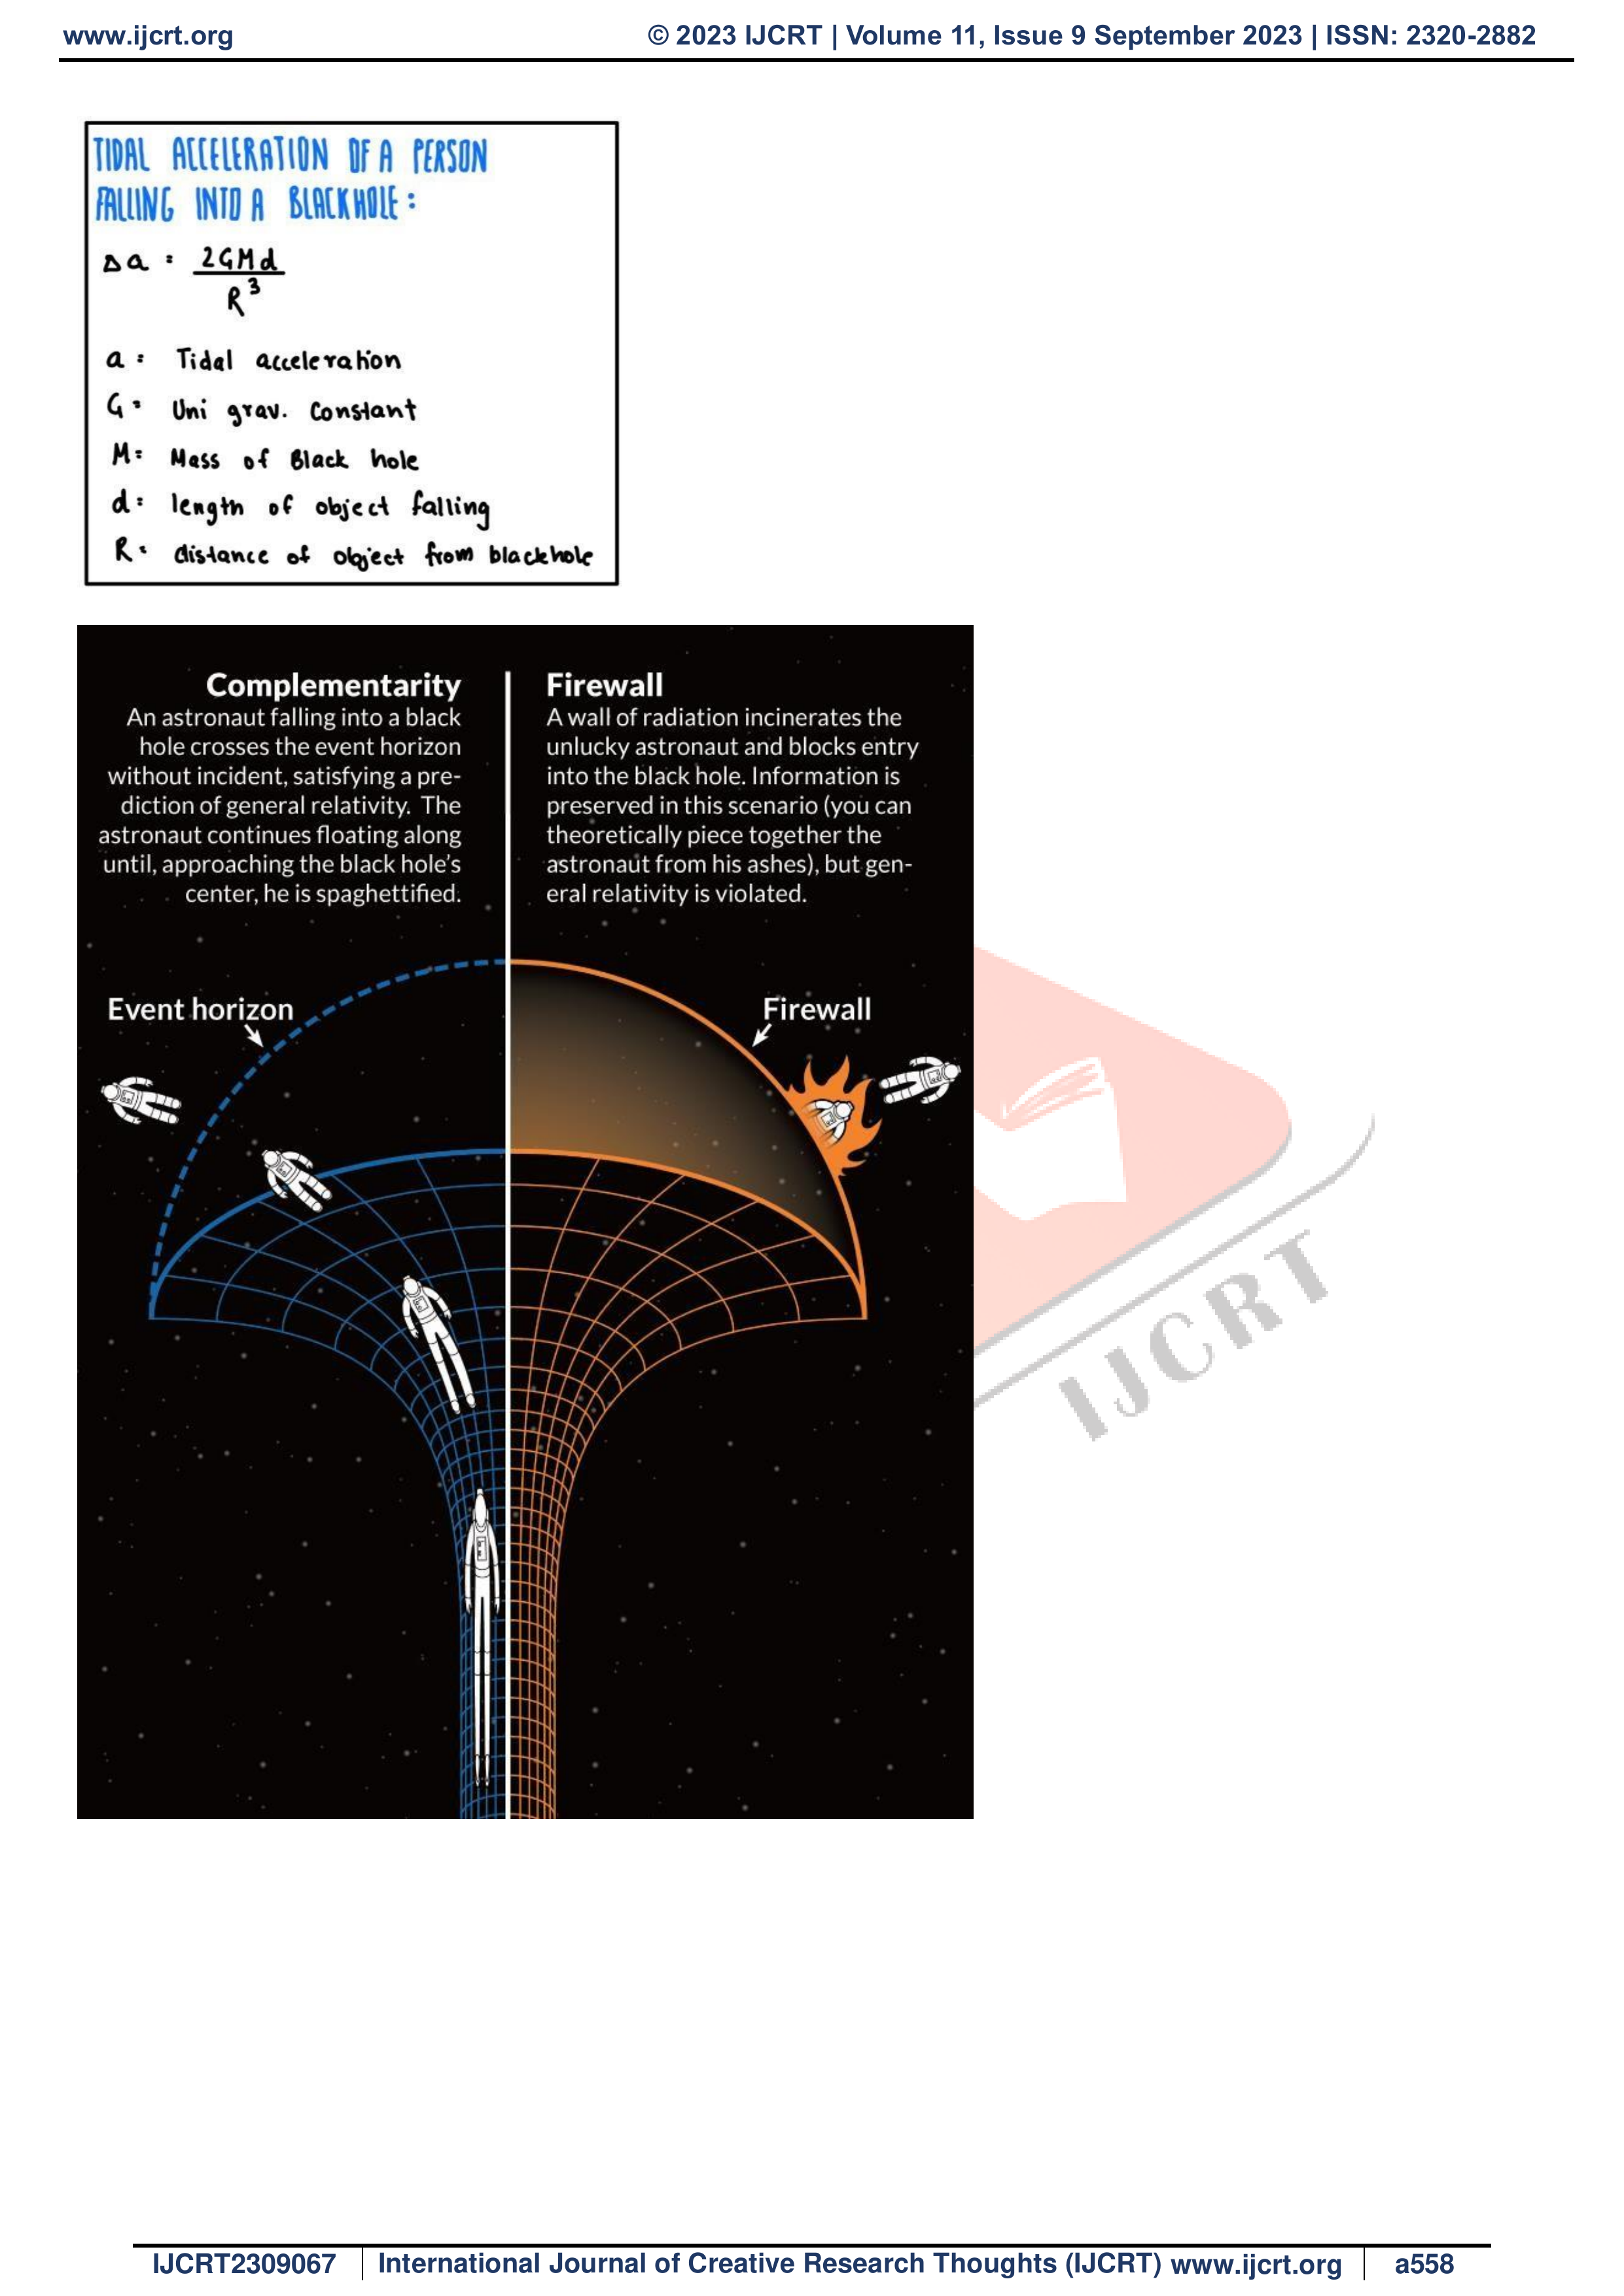 www.ijcrt.org © 2023 IJCRT | Volume 11, Issue 9 September 2023 | ISSN: 2320-2882
TIDAL ACCELERATION OF A PERSON
FALLING INTO A BLACKHOLE :
Δa = 2GMd / R³
a = Tidal acceleration
G = Uni grav. Constant
M = Mass of Black hole
d = length of object falling
R = distance of object from blackhole
Complementarity
An astronaut falling into a black
hole crosses the event horizon
without incident, satisfying a pre-
diction of general relativity. The
astronaut continues floating along
until, approaching the black hole's
center, he is spaghettified.
Firewall
A wall of radiation incinerates the
unlucky astronaut and blocks entry
into the black hole. Information is
preserved in this scenario (you can
theoretically piece together the
astronaut from his ashes), but gen-
eral relativity is violated.
Event horizon
Firewall
IJCRT
IJCRT2309067 International Journal of Creative Research Thoughts (IJCRT) www.ijcrt.org a558